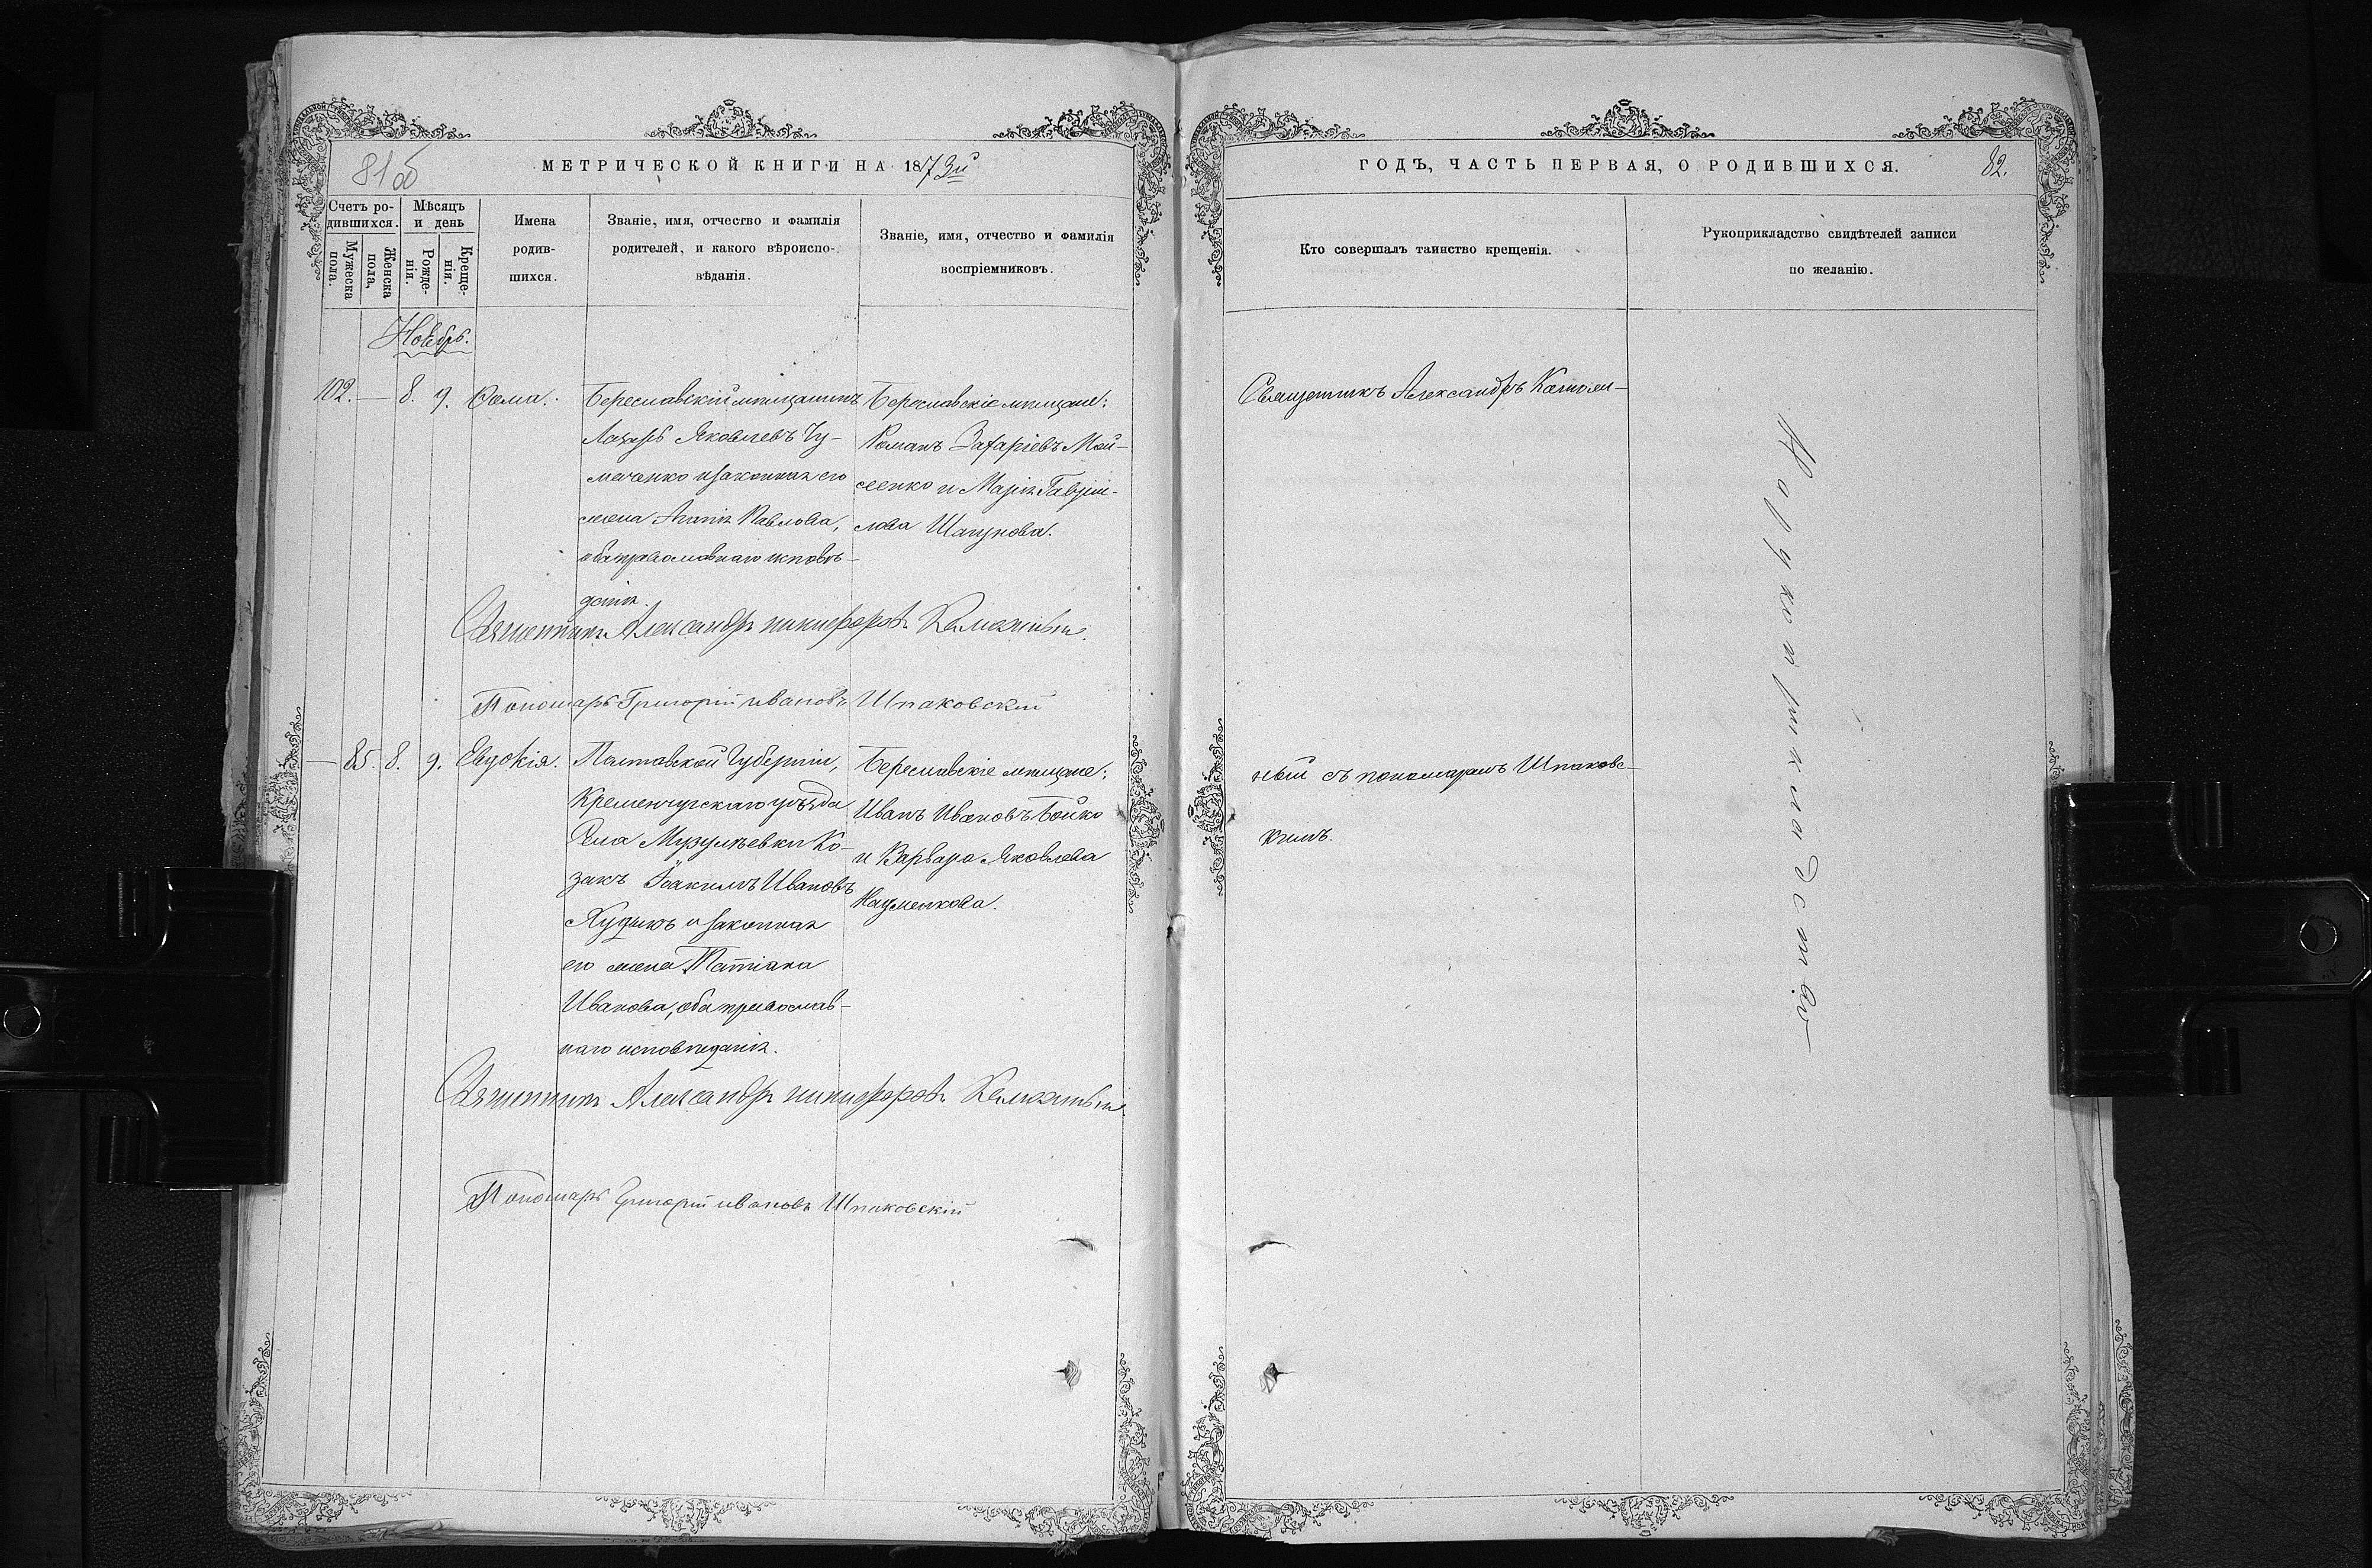 81 об
МЕТРИЧЕСКОЙ КНИГИ НА 1873й
Счетъ ро-
дившихся.
Мужеска
пола.
Женска
пола,
Мѣсяцъ
и день
Рожде-
нія.
Креще-
нія.
Имена
родив-
шихся.
Званіе, имя, отчество и фамилія
родителей, и какого вѣроиспо-
вѣданія.
Званіе, имя, отчество и фамилія
воспріемниковъ.
Ноябрь.
102. — 8. 9. Ѳома.
Береславскій мѣщанинъ
Лазарь Яковлевъ Чу-
маченко и законная его
жена Агапія Павлова,
оба православнаго исповѣ-
данія.
Береславскіе мѣщане:
Романъ Захаріевъ Мой-
сеенко и Марія Гавріи-
лова
Священникъ Александръ Никифоровъ
Пономарь Григорій Ивановъ Шпаковскій
— 85. 8. 9. Евдокія.
Полтавской Губерніи,
Кременчугскаго уѣзда
Села Ко-
закъ Іоакимъ Ивановъ
и законная
его жена Татіана
Иванова, оба православ-
наго исповѣданія.
Береславскіе мѣщане:
Иванъ Ивановъ Бойко
и Варвара Яковлева
Науменкова.
Священникъ Александръ Никифоровъ
Пономарь Григорій Ивановъ Шпаковскій
ГОДЪ, ЧАСТЬ ПЕРВАЯ, О РОДИВШИХСЯ.
82.
Кто совершалъ таинство крещенія.
Рукоприкладство свидѣтелей записи
по желанію.
Священникъ Александръ
ный съ пономаремъ Шпаковс-
кимъ.